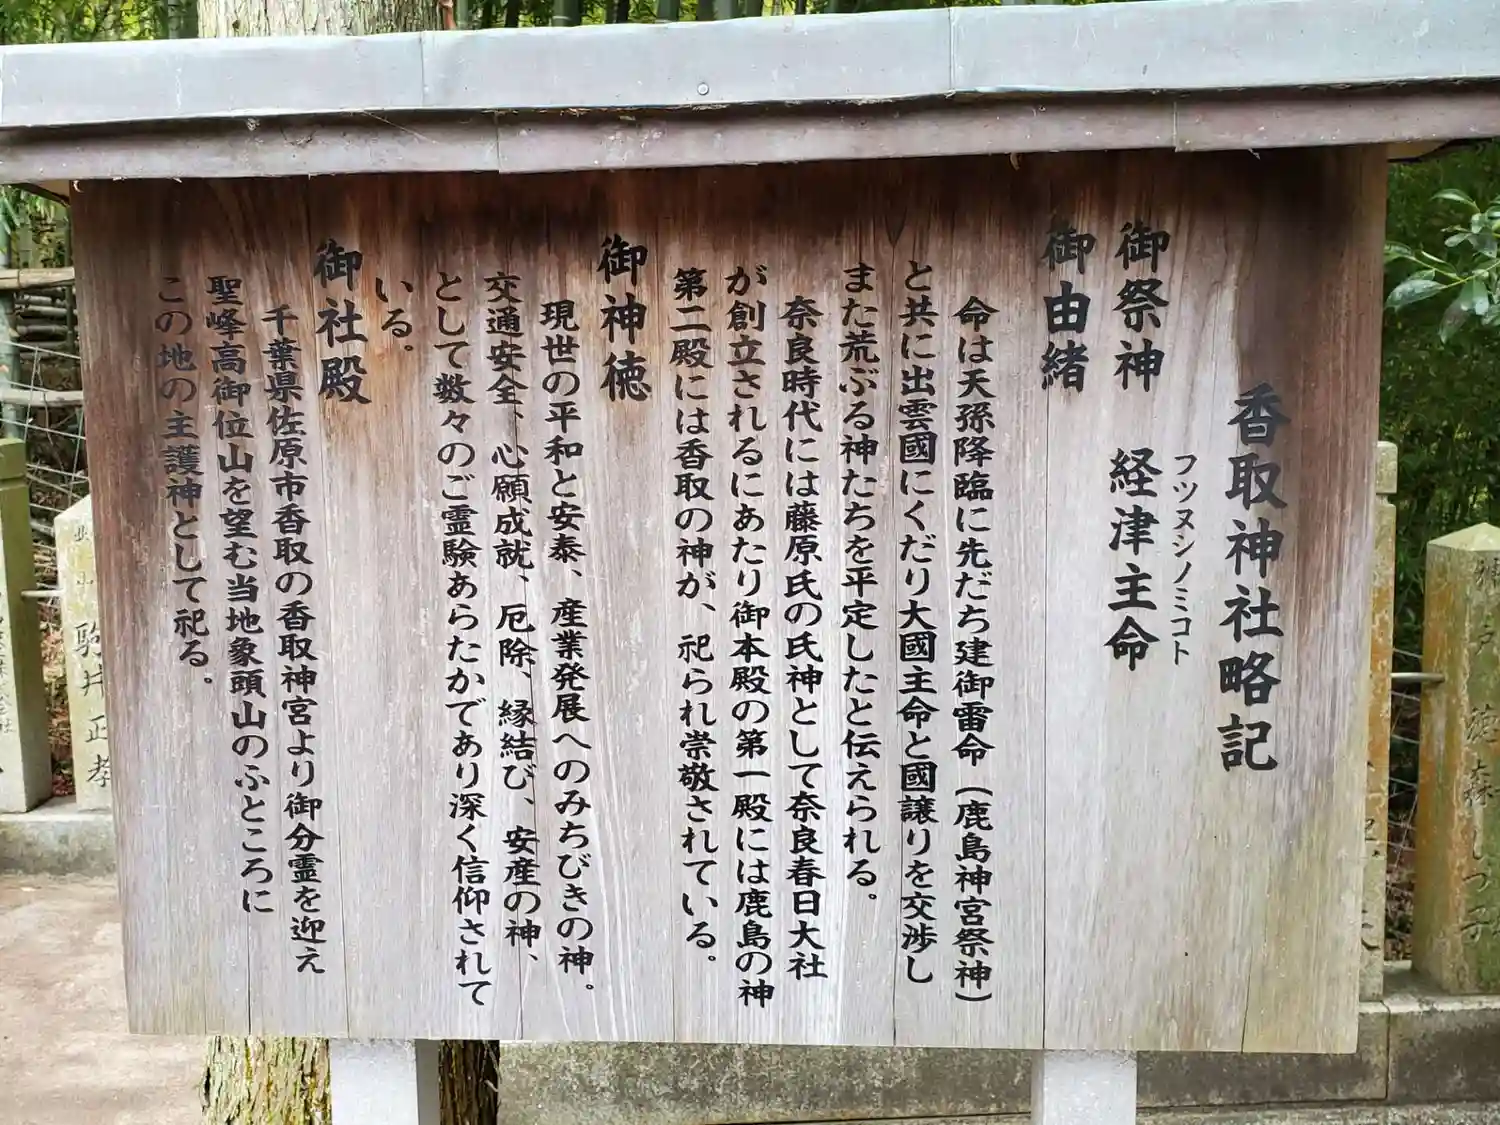 香取神社略記
御祭神 経津主命
フツヌシノミコト
御由緒
命は天孫降臨に先だち建御雷命(鹿島神宮祭神)
と共に出雲國にくだり大國主命と國譲りを交渉し
また荒ぶる神たちを平定したと伝えられる。
奈良時代には藤原氏の氏神として奈良春日大社
が創立されるにあたり御本殿の第一殿には鹿島の神
第二殿には香取の神が、祀られ崇敬されている。
御神徳
現世の平和と安泰、産業発展へのみちびきの神。
交通安全、心願成就、厄除、縁結び、安産の神、
として数々のご霊験あらたかであり深く信仰されて
いる。
御社殿
千葉県佐原市香取の香取神宮より御分霊を迎え
聖峰高御位山を望む当地象頭山のふところに
この地の主護神として祀る。
駒井正孝